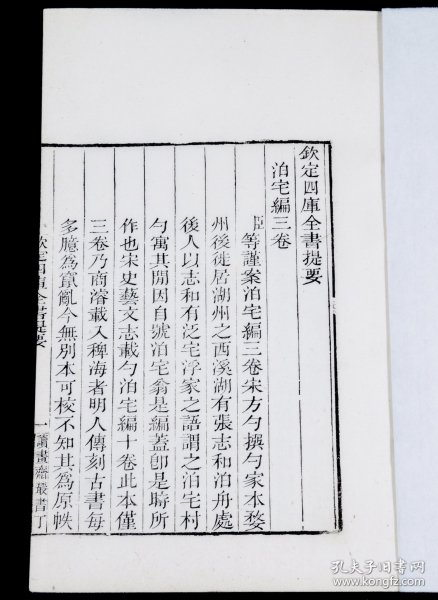 欽定四庫全書提要
泊宅編三卷
臣等謹案泊宅編三卷宋方勺撰勺家本婺
州後徙居湖州之西溪湖有張志和泊舟處
後人以志和有泛宅浮家之語謂之泊宅村
勺寓其間因自號泊宅翁是編蓋卽是時所
作也宋史藝文志載勺泊宅編十卷此本僅
三卷乃商濬載入稗海者明人傳刻古書每
多臆為竄亂今無別本可校不知其為原帙
欽定四庫全書提要
一
讀畫齋叢書丁
孔夫子旧书网
book.kongfz.com